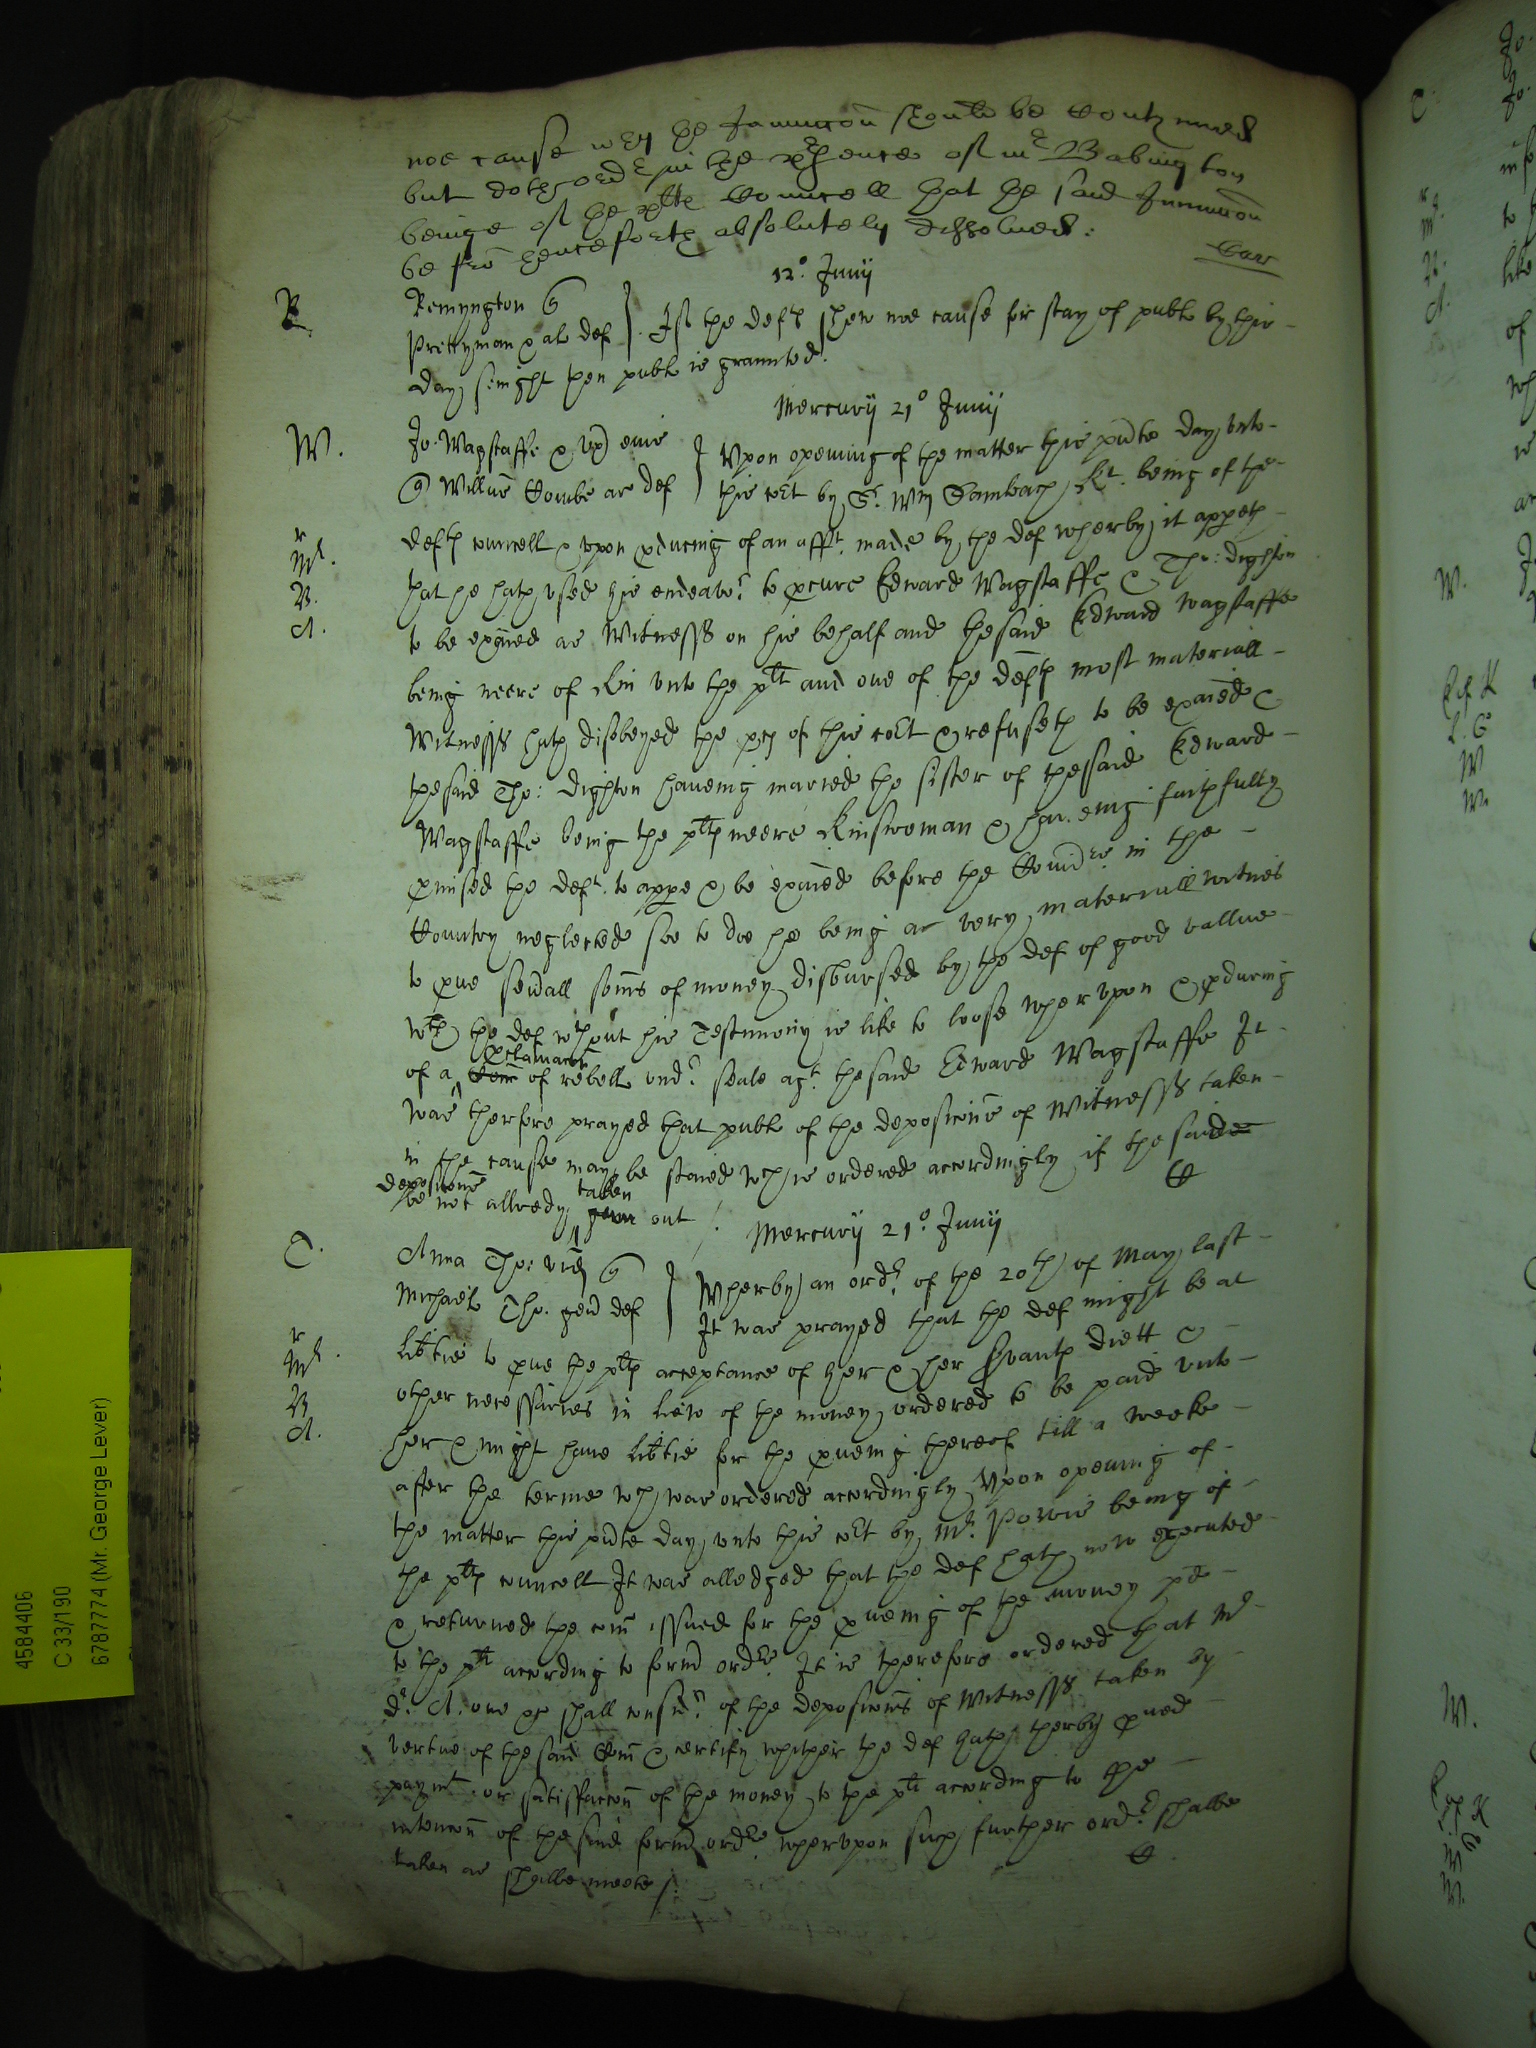 noe cause why the Iniunccōn should be Contynued
but doth ordr in the pñce of mr Babington
beinge of the pltes Councell that the said Iniunccōn
be frō henceforth absolutely dissolued:
12º. Junij
R
Remyngton q
Prettyman & al def } If the deftes shew noe cause for stay of publ by this
day senight then publ is graunted.
Mercurij 21º Junij
W.
Jo: Wagstaffe & ux eius } Upon opening of the matter this pñte day unto
q Willūs Combe ar def } this cort by Sr. Wm Sambach Kt. being of the
mr.
R.
A.
deftes councell & upon pducing of an afft. made by the def wherby it appeth
that he hath used his endeavor. to pcure Edward Wagstaffe & Tho: Dighton
to be exāied as Witnesses on his behalf and the said Edward Wagstaffe
being neere of kin unto the plt and one of the deftes most materiall
Witnesses hath disobeyed the pces of this cort & refuseth to be exāied &
the said Tho: Dighton haueing maried the sister of the said Edward
Wagstaffe being the pltes neere kinswoman & haueing faithfully
pmised the deft. to appe & be exāied before the Comrs in the
Country neglected soe to doe he being a very materiall witnes
to pue seūall soms of money disbursed by the def of good vallue
wch the def wthout his Testimony is like to loose wherupon & pducing
pclamacōn
of a Com of rebell undr. seale agt. the said Edward Wagstaffe It
was therfore prayed that publ of the deposicōns of Witnesses taken
in the cause may be staied wch is ordered accordingly if the saide
deposicōns taken
be not allredy geven out /.
Mercurij 21º. Junij
T.
Anna Tho: vid q } Wherby an ordr. of the 20th of May last
Michaell Tho: geñ def } It was prayed that the def might be at
mr.
R
A.
libtie to pue the pltes acceptance of her & her Svants diett &
other necessaries in liew of the money ordered to be paid unto
her & might haue libtie for the pueing thereof till a weeke
after the terme wch was ordered accordingly Upon opening of
the matter this pñte day unto this cort by Mr. Powis being of
the pltes councell It was alledged that the def hath now executed
& returned the com issued for the pueing of the money pd
to the plt according to form ordrs. It is therefore ordered that Mr
Dr. A: one &c shall considr. of the deposicōns of Witnesses taken by
vertue of the said Com & certify whither the def hath therby pued
paymt. or satisfaccōn of the money to the plt according to the
intencōn of the said form ordrs wherupon such further ordr. shalbe
taken as shalbe meete /.
4584406
C 33/190
6787774 (Mr. George Lever)